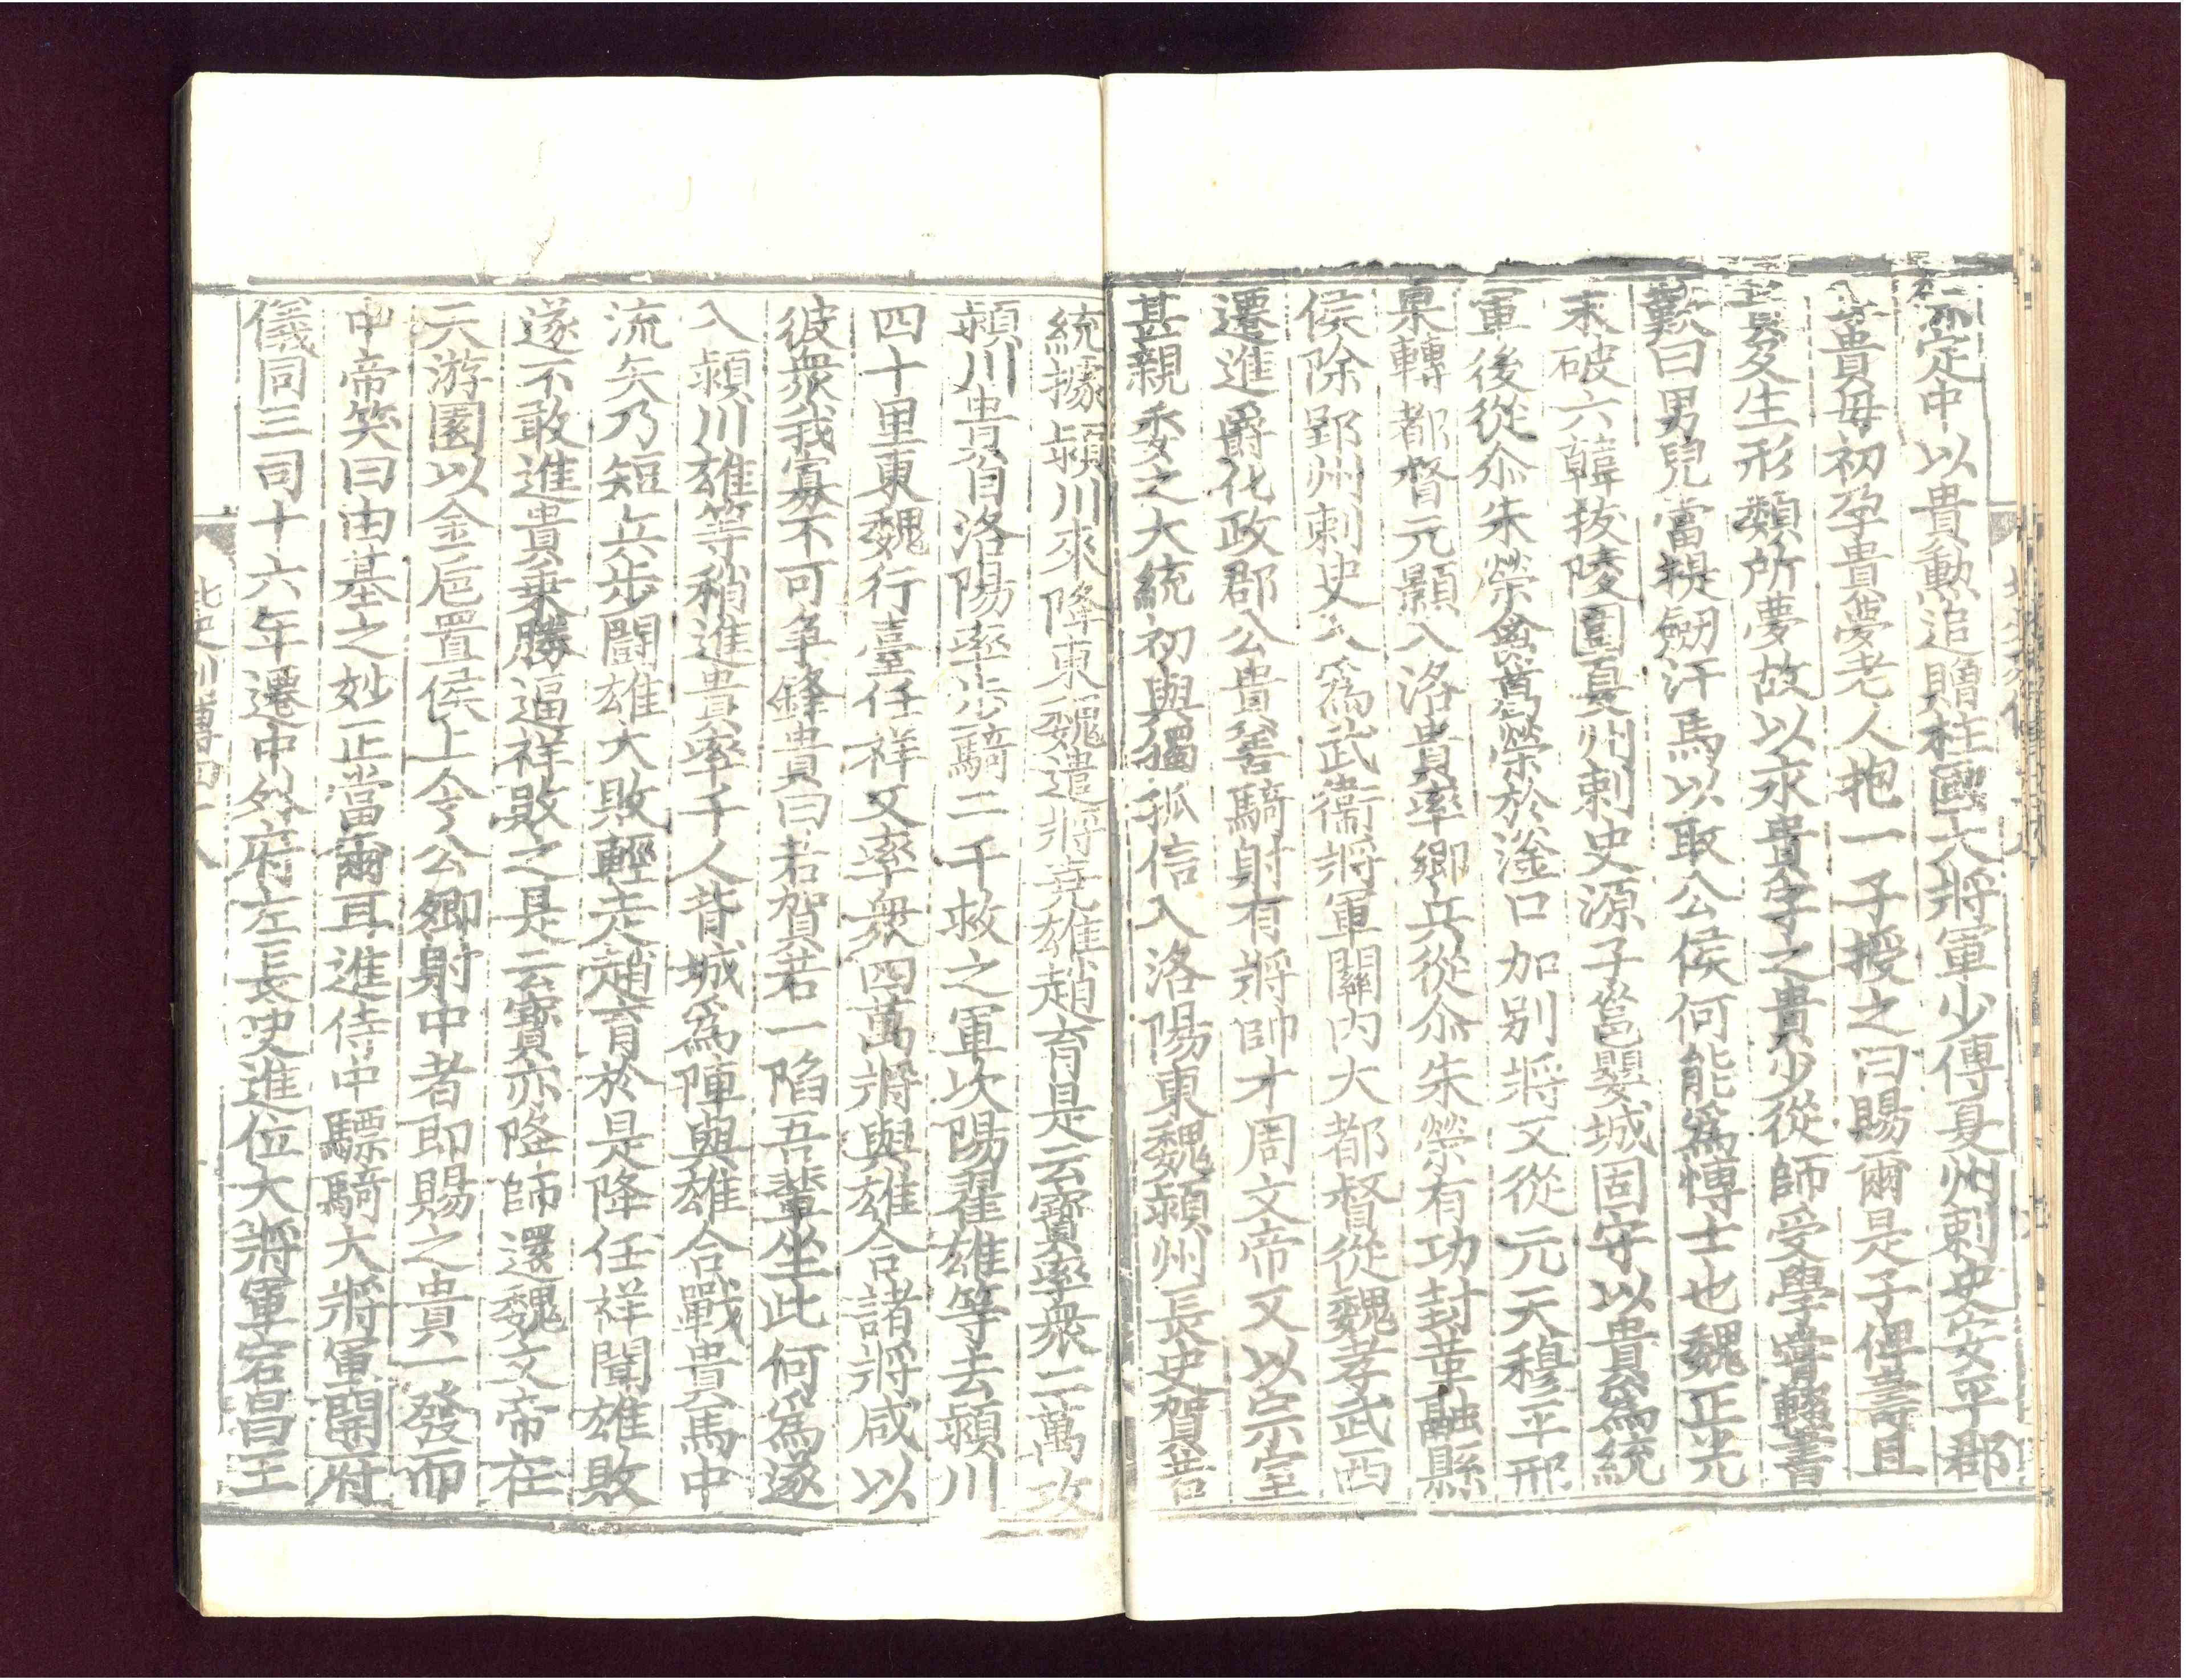 定中以貴勲追贈柱國大將軍少傅夏州刺史安平郡
貴母初孕貴夢老人抱一子授之曰賜爾是子俾壽且
長及生形類所夢故以永貴字之貴少從師受學嘗輟書
歎曰男兒當提劒汗馬以取公侯何能爲愽士也魏正光
末破六韓拔陵圍夏州刺史源子邕嬰城固守以貴爲統
軍後從尒朱榮禽葛榮於滏口加别將又從元天穆平邢
杲轉都督元顥入洛貴率鄉兵從尒朱榮有功封革融縣
侯除郢州刺史入爲武衞將軍關内大都督從魏孝武西
遷進爵化政郡公貴善騎射有將帥才周文帝又以宗室
甚親委之大統初與獨孤信入洛陽東魏潁州長史賀若
統據潁川來降東魏遣將堯雄趙育是云寶率衆二萬攻
潁川貴自洛陽率步騎二千救之軍次陽翟雄等去潁川
四十里東魏行臺任祥又率衆四萬將與雄合諸將咸以
彼衆我寡不可争鋒貴曰若賀若一陷吾輩坐此何爲遂
入潁川雄等稍進貴率千人背城爲陣與雄合戰貴馬中
流矢乃短兵步鬬雄大敗輕走趙育於是降任祥聞雄敗
遂不敢進貴乗勝逼祥敗之是云寶亦降師還魏文帝在
天游園以金巵置侯上令公卿射中者即賜之貴一發而
中帝笑曰由基之妙正當爾耳進侍中驃騎大將軍開府
儀同三司十六年遷中外府左長史進位大將軍宕昌王
北史列傳四十八